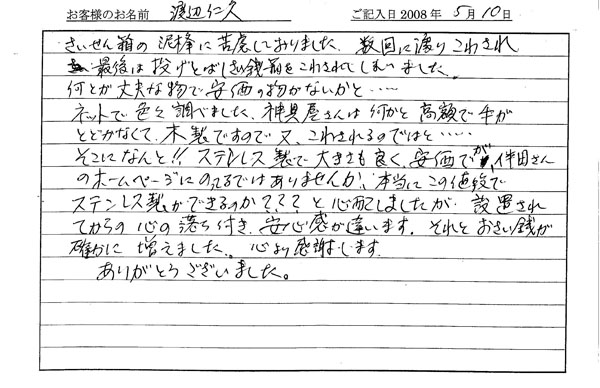 お客様のお名前 渡辺仁久 ご記入日2008年 5月10日
さいせん箱の泥棒に苦慮しておりました。数回に渡りこわされ
最後は投げとばしさい銭箱をこわされてしまいました。
何とか丈夫な物で安価の物がないかと……
ネットで色々調べました、神具屋さんは何かと高額で手が
とどかなくて、木製ですので又、こわされるのではと……
そこになんと!! ステンレス製で大きさも良く、安価でが、伴田さん
のホームページにのってるではありませんか、本当にこの値段で
ステンレス製ができるのか???と心配しましたが 設置され
てからの心の落ち付き、安心感が違います。それとおさい銭が
確かに増えました。心より感謝します。
ありがとうございました。